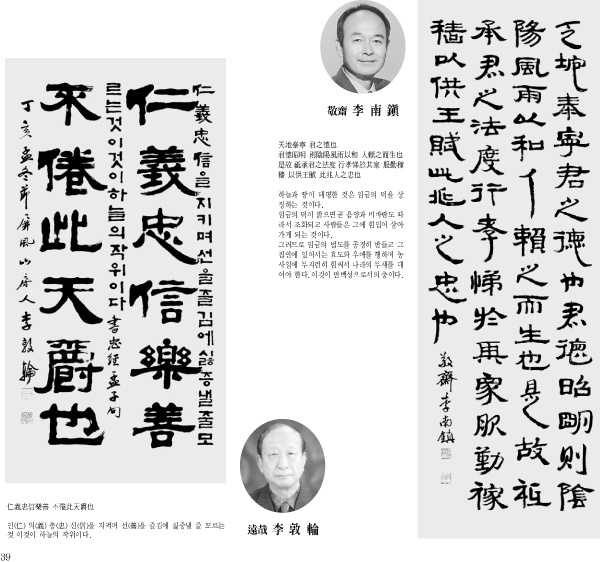 仁義忠信을지키며선을즐김에싫증낼줄모
仁義忠信樂善
르는것이것이하늘의작위이다 書忠經孟子句
不倦此天爵也
丁亥孟冬節 屛風山房人 李敦輪
仁義忠信樂善 不倦此天爵也
인(仁) 의(義) 충(忠) 신(信)을 지켜며 선(善)을 즐김에 싫증낼 줄 모르는
것 이것이 하늘의 작위이다.
39
敬齋 李南鎭
天地泰寧 君之德也
君德昭明 則陰陽風雨以和 人賴之而生也
是故 祗承君之法度 行孝悌於其家 服勤稼
穡 以供王賦 此兆人之忠也
하늘과 땅이 태평한 것은 임금의 덕을 상
징하는 것이다.
임금의 덕이 밝으면 곧 음양과 비바람도 따
라서 조화되고 사람들은 그에 힘입어 살아
가게 되는 것이다.
그러므로 임금의 법도를 공경히 받들고 그
집안에 있어서는 효도와 우애를 행하며 농
사일에 부지런히 힘써서 나라의 부세를 대
어야 한다. 이것이 만백성으로서의 충이다.
遠哉 李敦輪
天地泰寧君之德也君德昭明則陰
陽風雨以和人賴之而生也是故祗
承君之法度行孝悌於其家服勤稼
穡以供王賦此兆人之忠也
敬齋 李南鎭